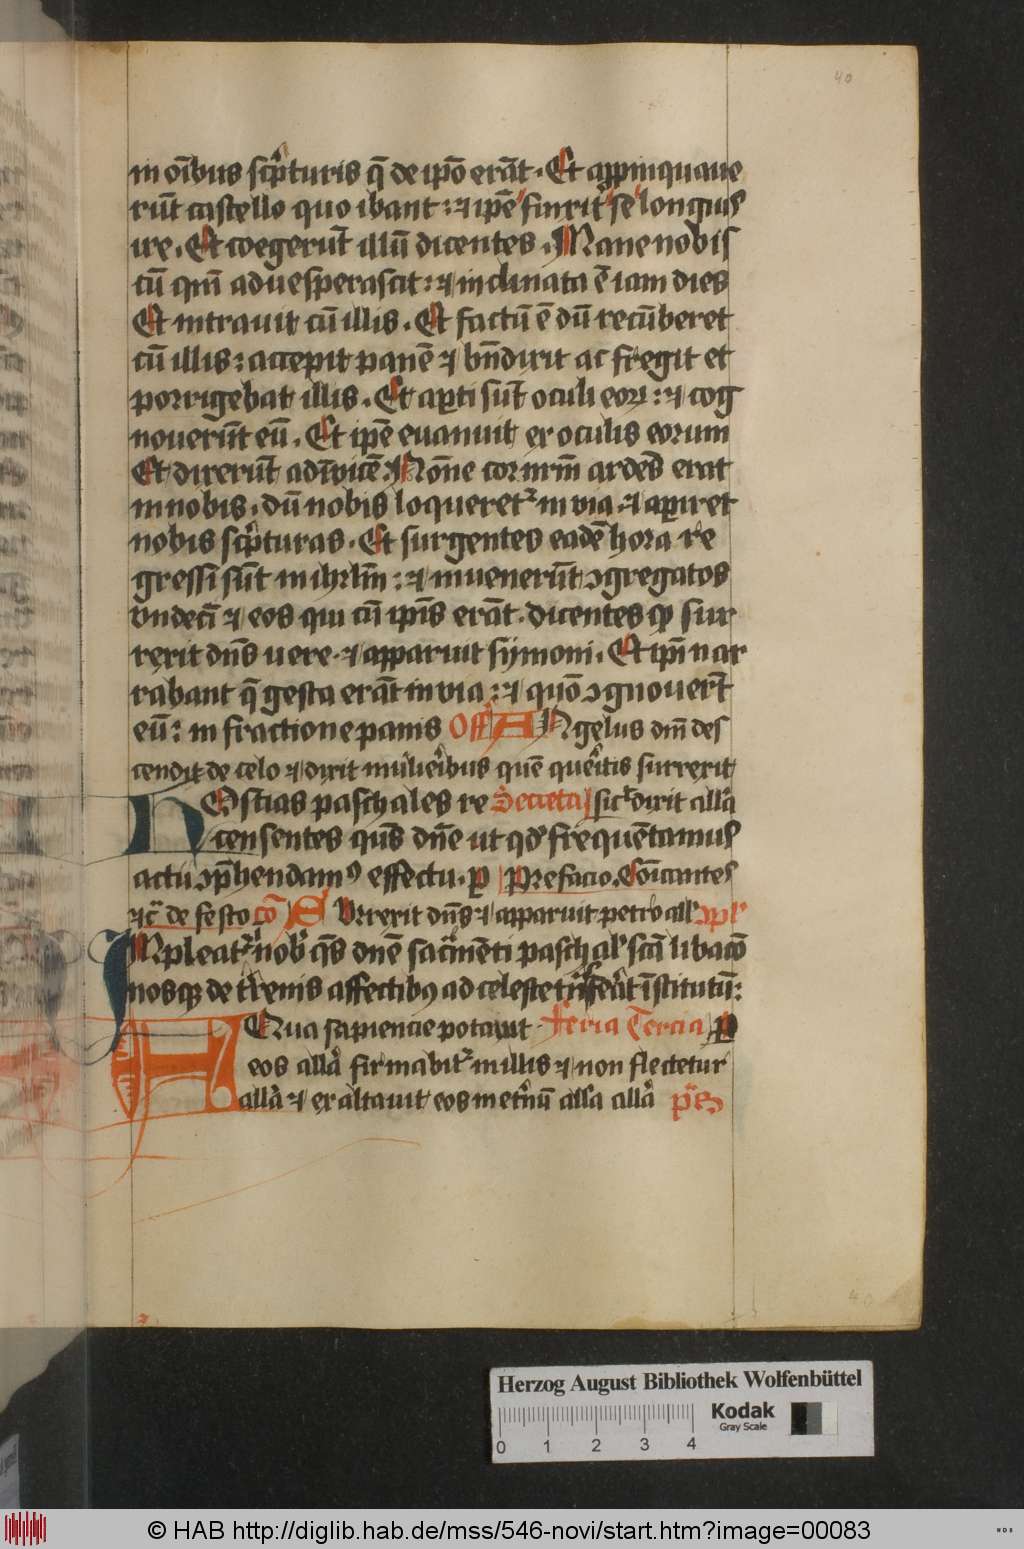 40
in oĩbus scͥpturis q̃ de ip̃o erãt. Et appinquaue
rũt castello quo ibant: ⁊ ip̃e finxit se longius
ire. Et coegerũt illũ dicentes. Mane nobis
cũ qm̃ aduesperascit: ⁊ inclinata ẽ iam dies
Et intrauit cũ illis. Et factũ ẽ dũ recũberet
cũ illis: accepit panẽ ⁊ bñdixit ac fregit et
porrigebat illis. Et apti sũt oculi eoꝝ: ⁊ cog
nouerũt eũ. Et ip̃e euanuit ex oculis eorum
Et dixerũt adĩuicẽ Nõne cor nr̃m ardẽs erat
in nobis. dũ nobis loqueretᷣ in via. ⁊ apiret
nobis scͥpturas. Et surgentes eadẽ hora re
gressi sũt in ihrl̃m: ⁊ inuenerũt ꝯgregatos
vndeci͂ ⁊ eos qui cũ ip̃is erãt. dicentes ꝙ sur
rexit dñs vere. ⁊ apparuit symoni. Et ip̃i nar
rabant q̃ gesta erãt in via: ⁊ quõ ꝯgnouerũt
eũ: in fractione panis Off ANgelus dñi des
cendit de celo ⁊ dixit mulieͥibus quẽ queͥitis surrexit
HOstias paschales re Secreta sicᷓ dixit allᷓa
censentes qũs dñe ut qd̾ frequẽtamus
actu ꝯp̃hendamꝰ effectu. ꝑ Prefacio. Cõicantes
⁊cᷓ de festo cõ SVrrexit dñs ⁊ apparuit petro all' ꝯpl'
IMpleatᷣ nob' q̃s dñe sacͣmẽti paschal' scã libacõ
nosqꝫ de trenis affectibꝰ ad celeste tͣnsferãt ĩstitutũ:
AQua sapiencie potauit Feria Tercia ꝑ
eos allᷓa firmabitᷣ in illis ⁊ non flectetur
allᷓa ⁊ exaltauit eos in etnũ alla allᷓa p̃s
40
Herzog August Bibliothek Wolfenbüttel
Kodak
Gray Scale
0 1 2 3 4
© HAB http://diglib.hab.de/mss/546-novi/start.htm?image=00083